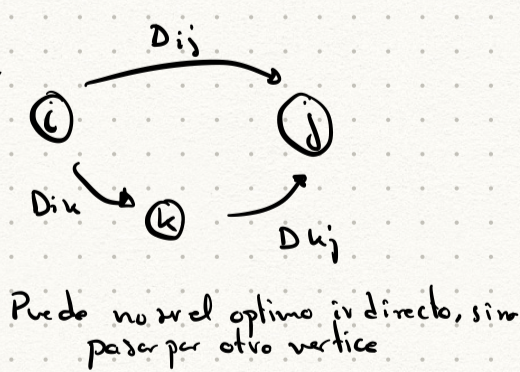 Dij
i
j
Dik
k
Dkj
Puede no ser el optimo ir directo, sino
pasar por otro vertice